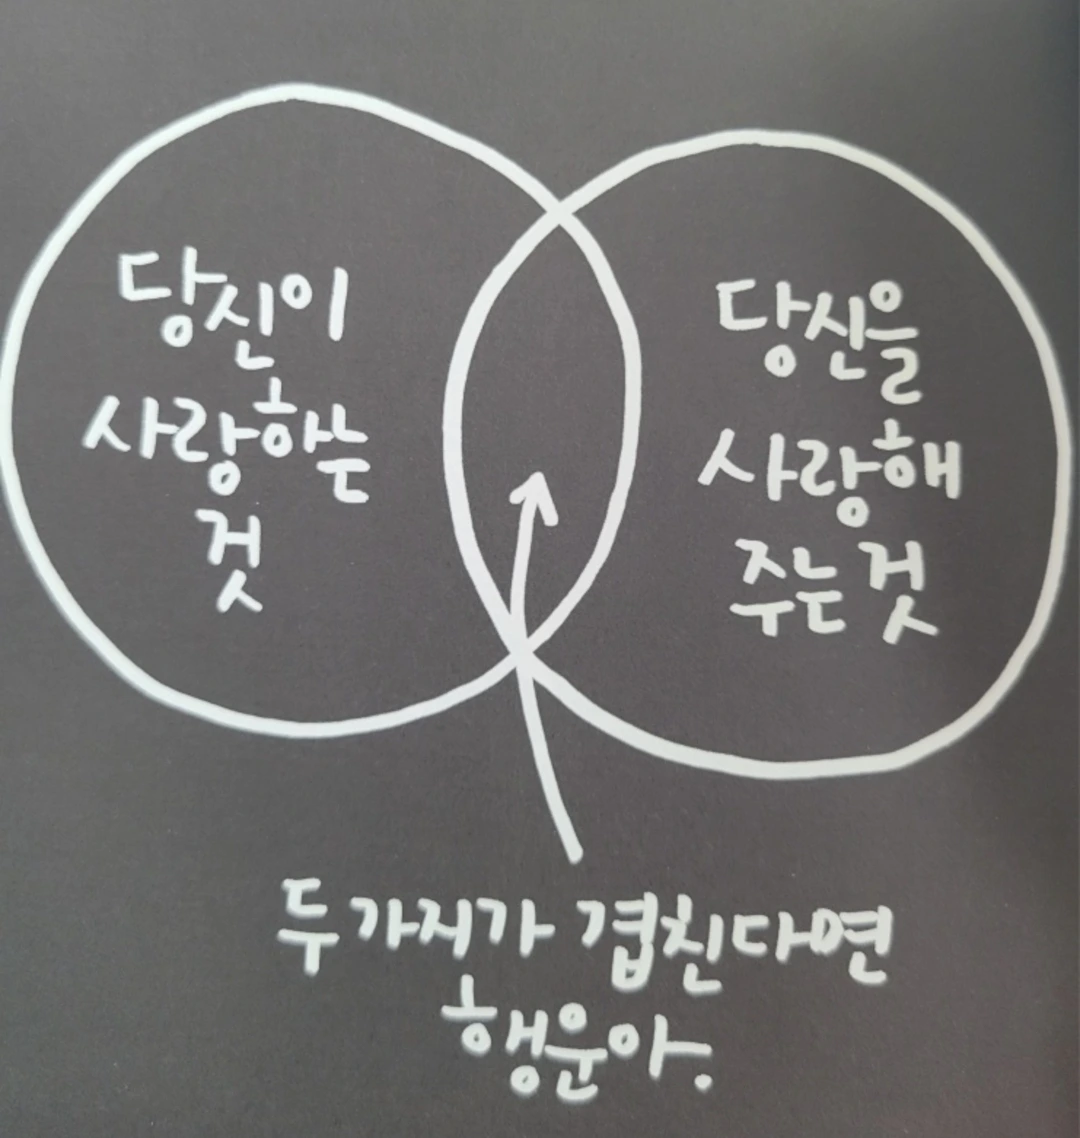 당신이
사랑하는
것
당신을
사랑해
주는 것
두 가지가 겹친다면
행운아.